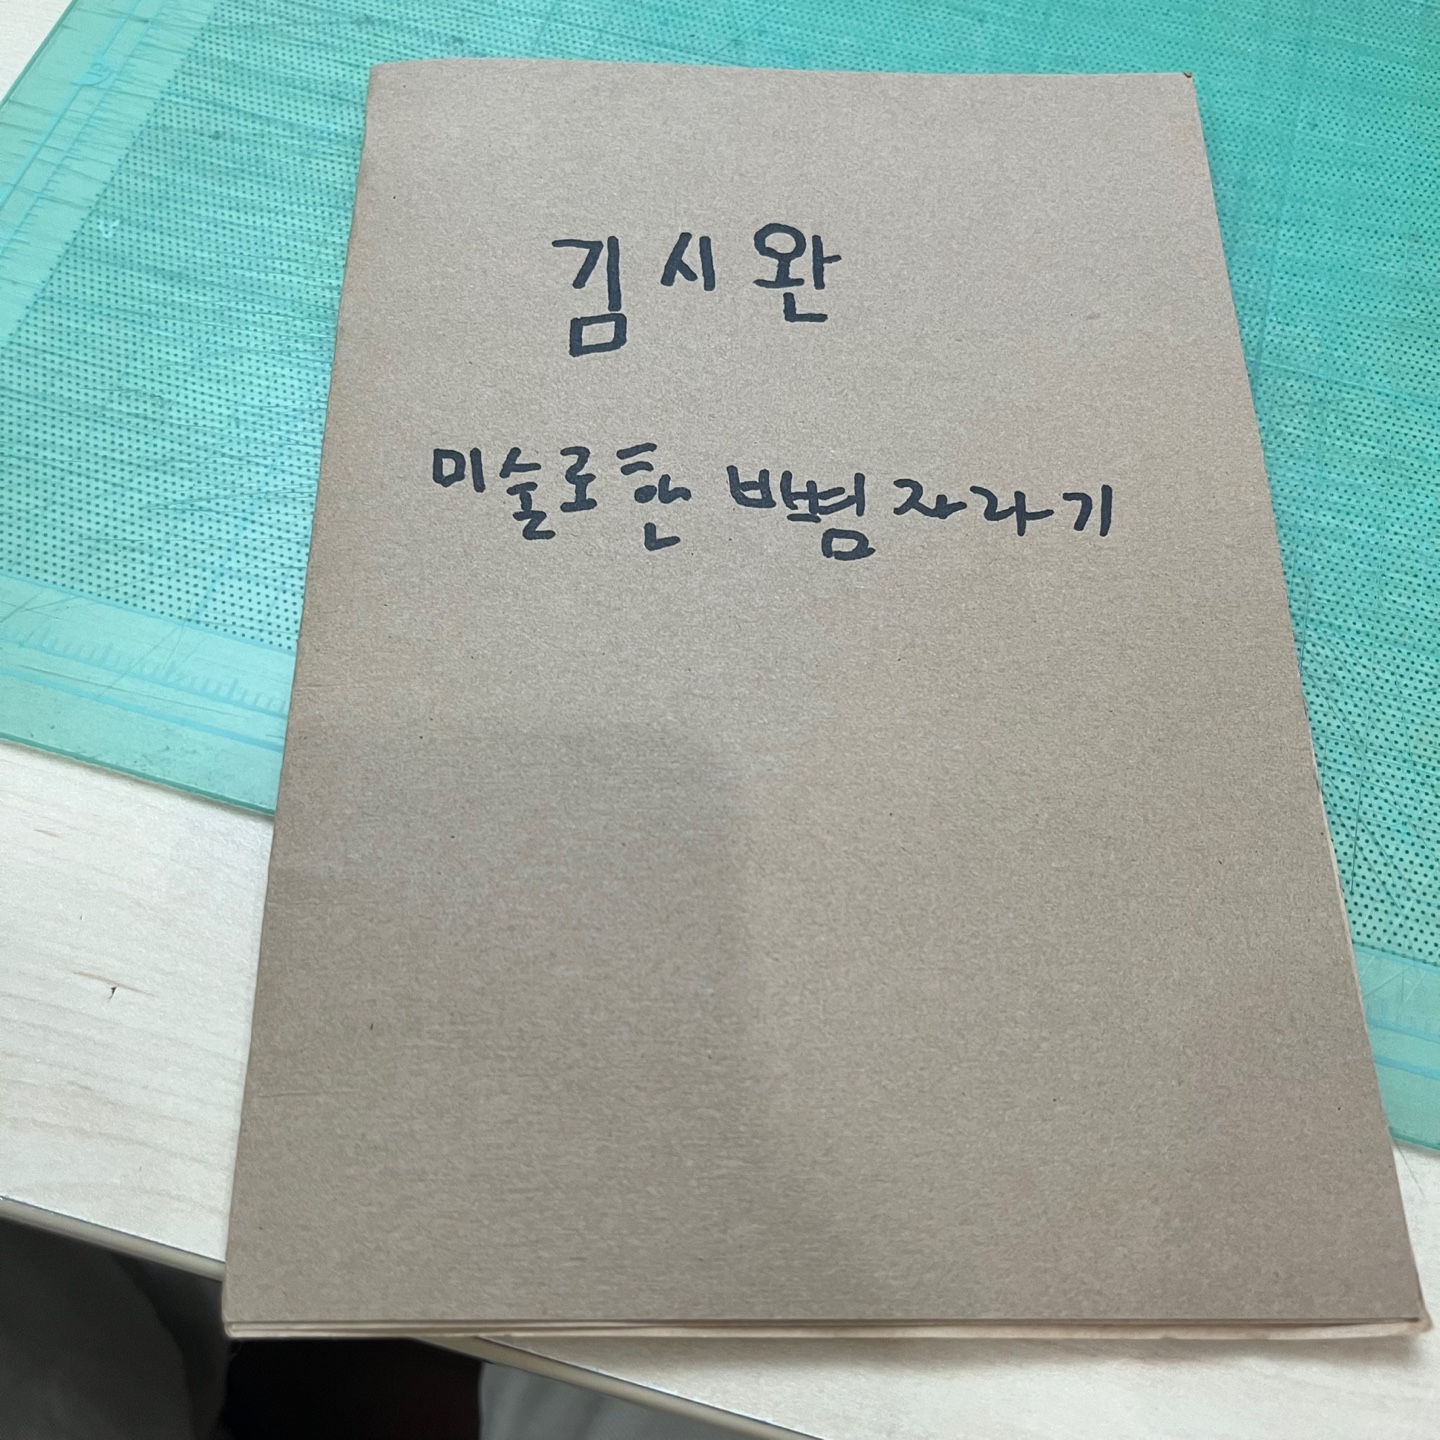 김시완
미술로한 뱌볌자라기